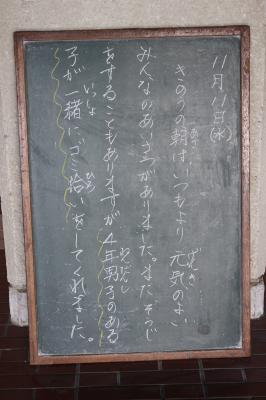 11月11日(水)
きのうの朝は、いつもより元気のよい
みんなのあいさつがありました。またそうじ
をすることもありますが、4年男子のある
子が一緒にゴミ拾いをしてくれました。